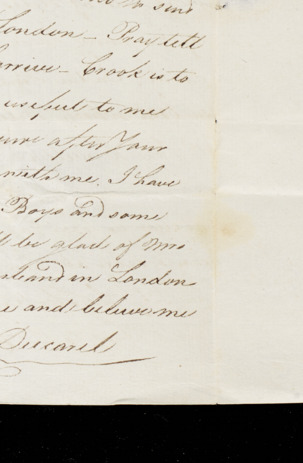 to send
London – Pray tell
arrive – Crook is to
useful to me
after Your
with me. I have
Boys and some
be glad of Mrs
and in London
and believe me
Ducarel